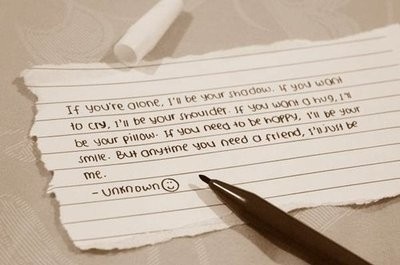 If you're alone, I'll be your shadow. If you want
to cry, I'll be your shoulder. If you want a hug, I'll
be your pillow. If you need to be happy, I'll be your
smile. But anytime you need a friend, I'll just be
me.
- unknown ☺